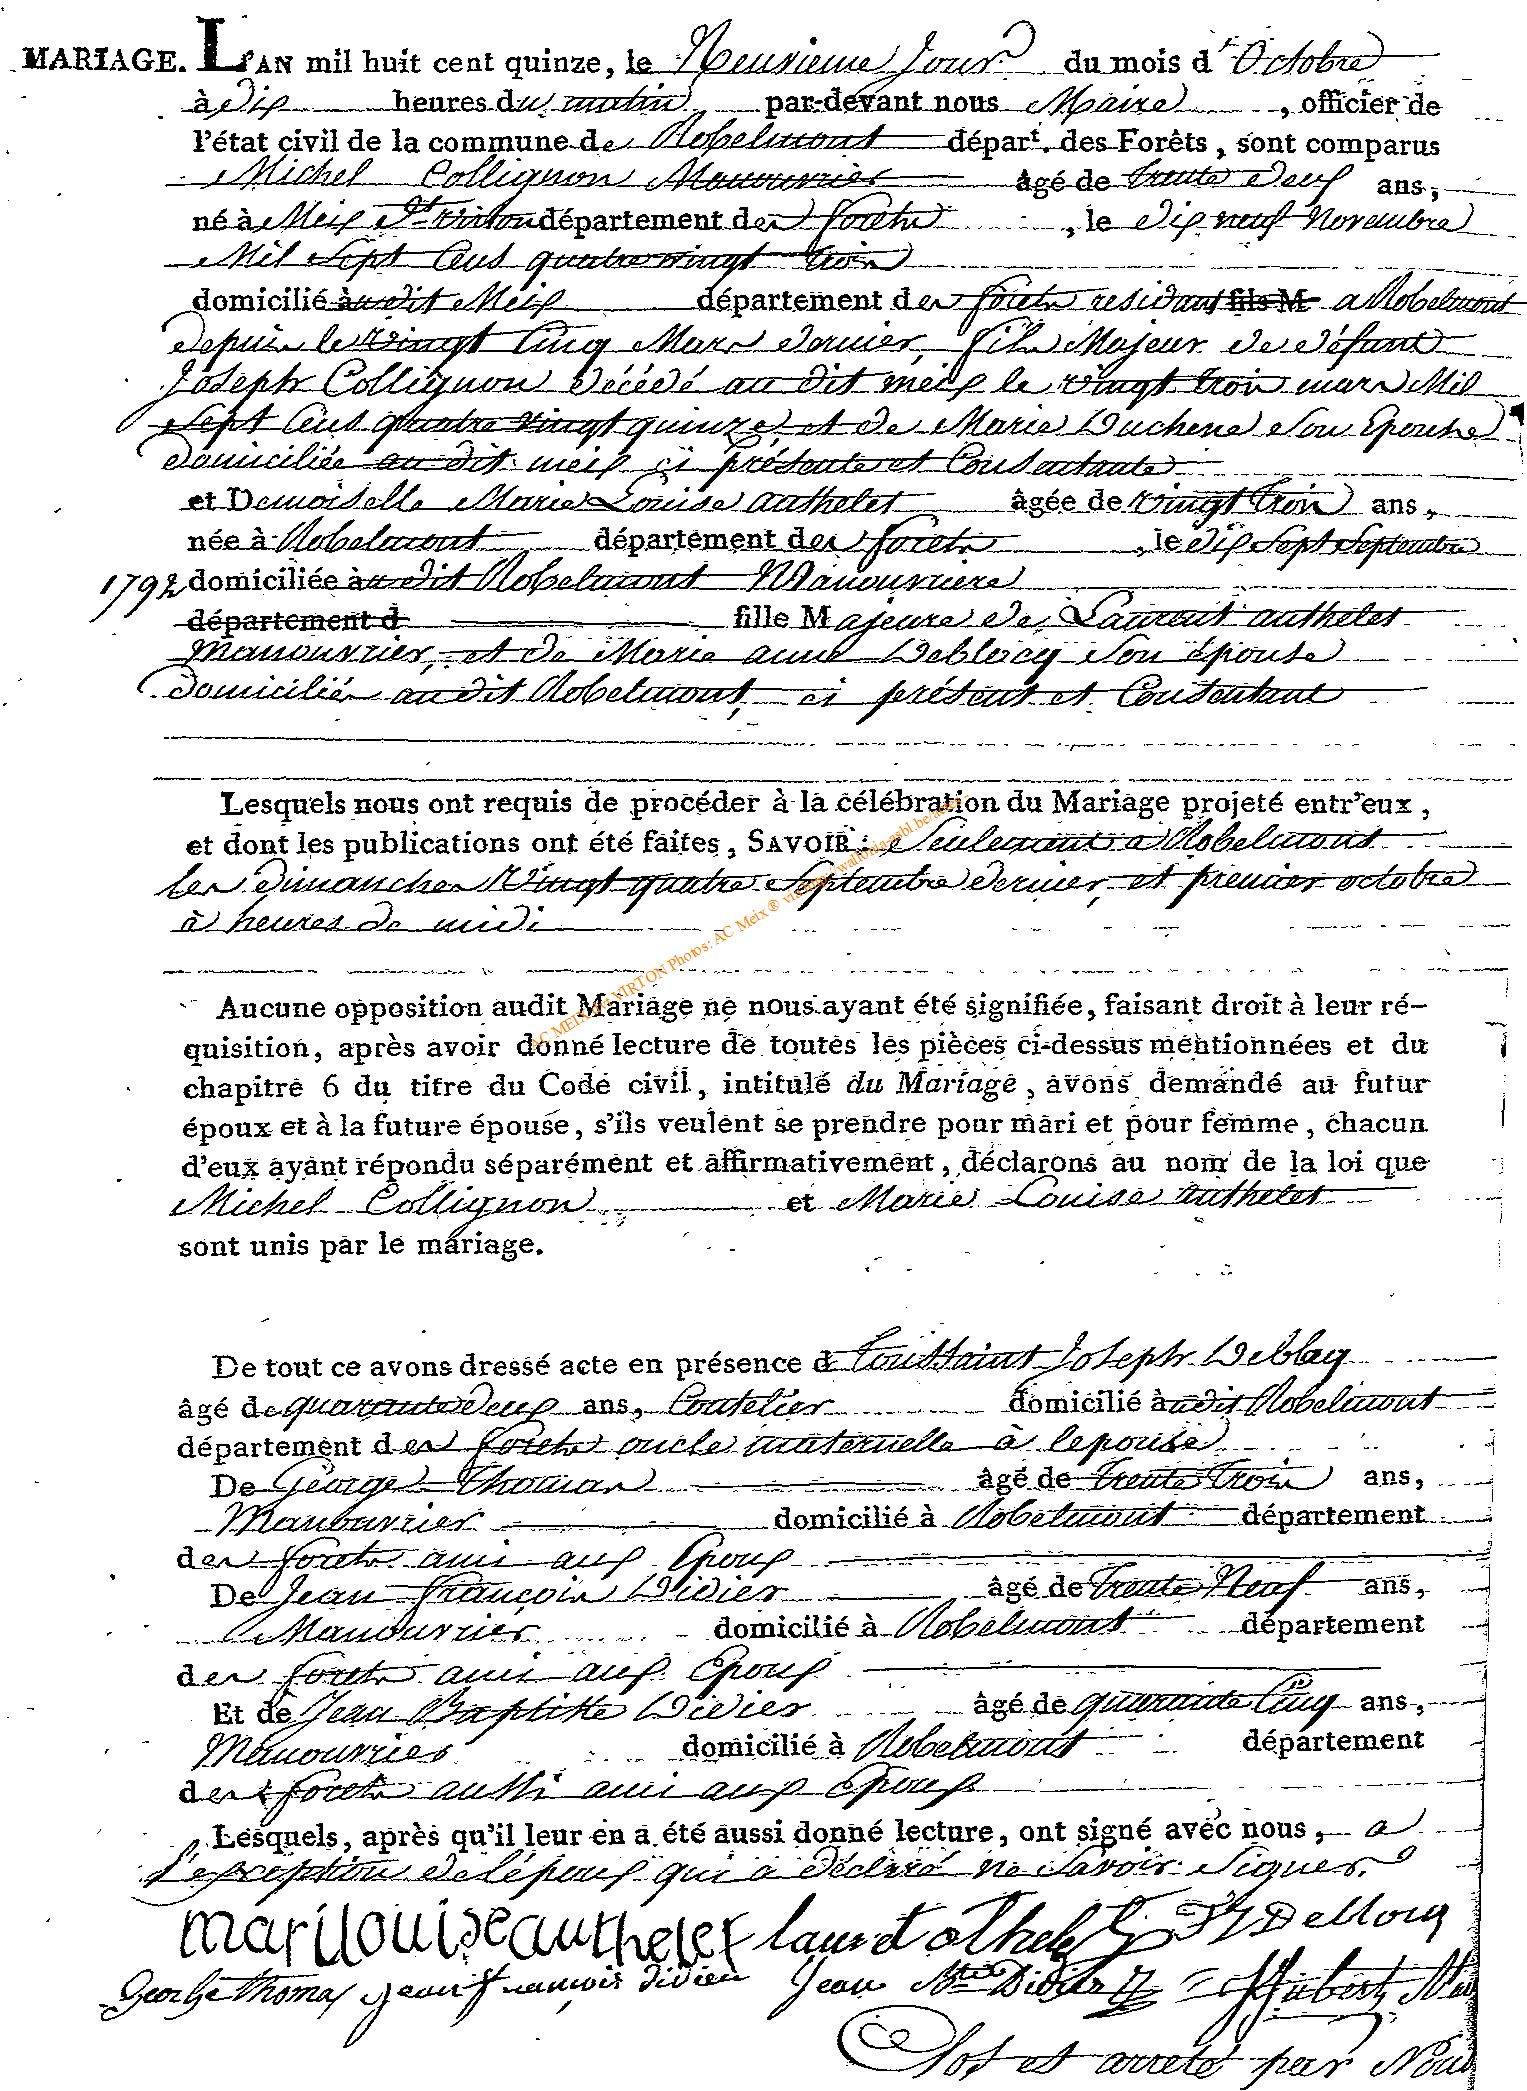 MARIAGE. L'AN mil huit cent quinze, le Neuvieme Jour du mois d'Octobre
à dix heures du matin par-devant nous Maire, officier de
l'état civil de la commune de Robelmont départ. des Forêts, sont comparus
Michel Collignon Manouvrier âgé de trente deux ans,
né à Meix dt virton département des forets, le dix neuf Novembre
Mil Sept Cens quatre vingt trois
domicilié audit Meix département des forets residant fils M a Robelmont
depuis le vingt Cinq Mars dernier, fils Majeur de défunt
Joseph Collignon décédé au dit meix le vingt trois mars Mil
Sept Cens quatre vingt quinze, et de Marie Duchene son Epouse
domiciliée au dit meix ci présente et Consentante
et Demoiselle Marie Louise authelet âgée de vingt trois ans,
née à Robelmont département des forets, le dix Sept Septembre
1792 domiciliée audit Robelmont Manouvriere
département d fille Majeure de Laurent authelet
Manouvrier, et de Marie anne Deblocq son épouse
domiciliés audit Robelmont, ci présent et Consentant
Lesquels nous ont requis de procéder à la célébration du Mariage projeté entr'eux,
et dont les publications ont été faites, SAVOIR: Seulement a Robelmont
les dimanches vingt quatre Septembre dernier, et premier octobre
à heures de midi
AC MEIX dt VIRTON Photos: AC Meix ®
Aucune opposition audit Mariage ne nous ayant été signifiée, faisant droit à leur ré-
quisition, après avoir donné lecture de toutes les pièces ci-dessus mentionnées et du
chapitre 6 du titre du Code civil, intitulé du Mariage, avons demandé au futur
époux et à la future épouse, s'ils veulent se prendre pour mari et pour femme, chacun
d'eux ayant répondu séparément et affirmativement, déclarons au nom de la loi que
Michel Collignon et Marie Louise authelet
sont unis par le mariage.
De tout ce avons dressé acte en présence d Toussaint Joseph Deblocq
âgé de quarante deux ans, Coutelier domicilié audit Robelmont
département des forets oncle maternelle à lepouse
De George Thomas âgé de trente trois ans,
Manouvrier domicilié à Robelmont département
des forets ami aux Epoux
De Jean françois Didier âgé de trente Neuf ans,
Manouvrier domicilié à Robelmont département
des forets ami aux Epoux
Et de Jean Baptiste Didier âgé de quarante Cinq ans,
Manouvrier domicilié à Robelmont département
des forets aussi ami aux Epoux
Lesquels, après qu'il leur en a été aussi donné lecture, ont signé avec nous, a
l'exception de l'époux qui a déclaré ne savoir signer.
mariLouise authelet laurent othelet TJ Deblocq
George thomas jean françois didier Jean Bte Didier Hubert
Clos et arreté par Nous